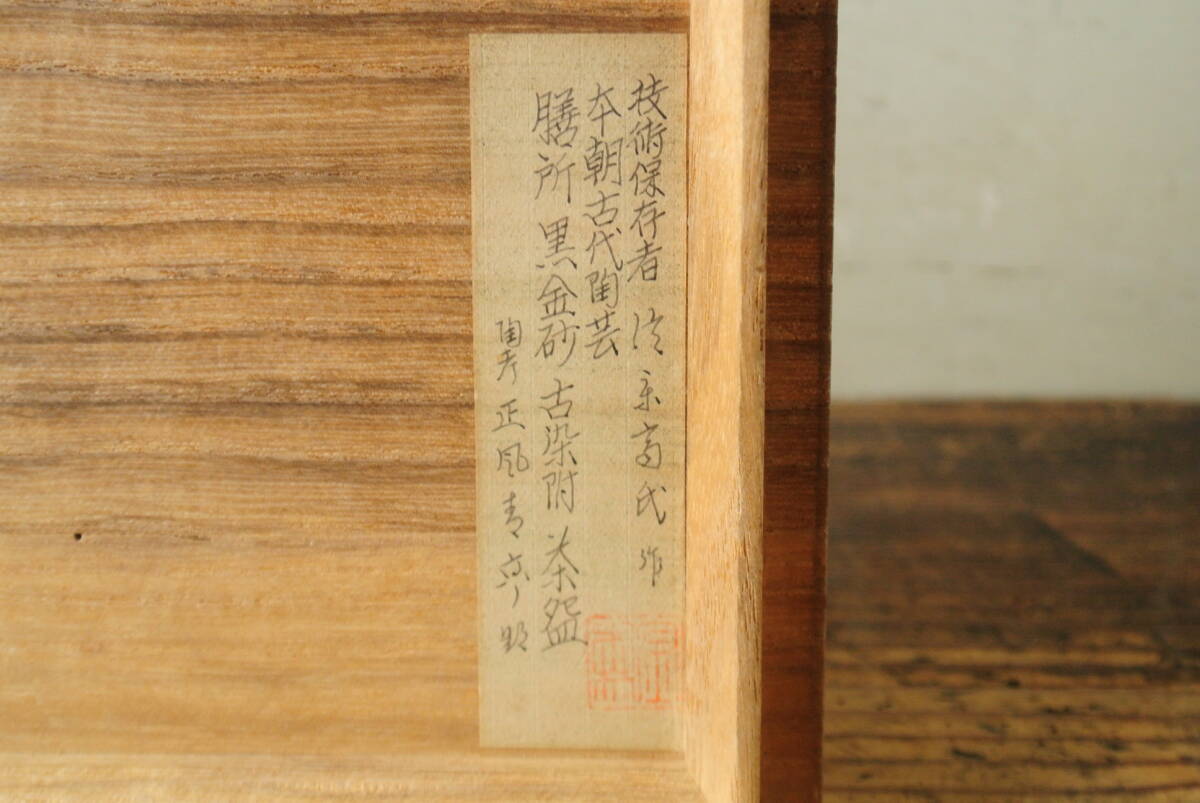 技術保存者 宗高氏作
本朝古代陶芸
膳所 黒金砂 古染附 茶盌
陶 正風青